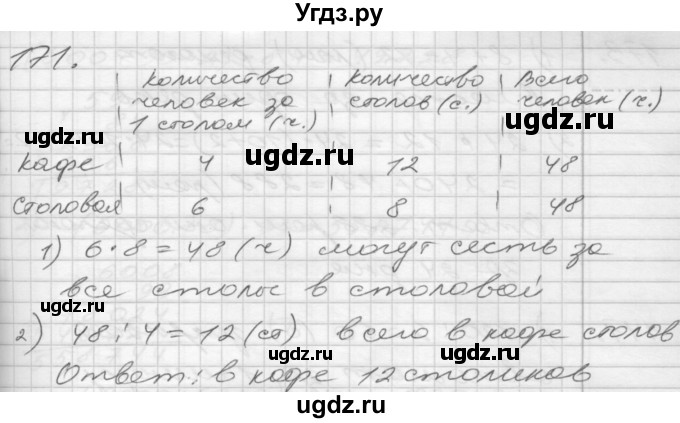 Угdз.ру
171.
количество количество Всего
человек за столов (с.) человек (ч.)
1 столом (ч.)
ugdz.ru ugdz.ru
ugdz.ru
кафе 4 12 48
столовая 6 8 48
1) 6 · 8 = 48 (ч) могут сесть за
все столы в столовой
ugdz.ru ugdz.ru
2) 48 : 4 = 12 (ст) всего в кафе столов
ugdz.ru ugdz.ru
Ответ: в кафе 12 столиков
ugdz.ru